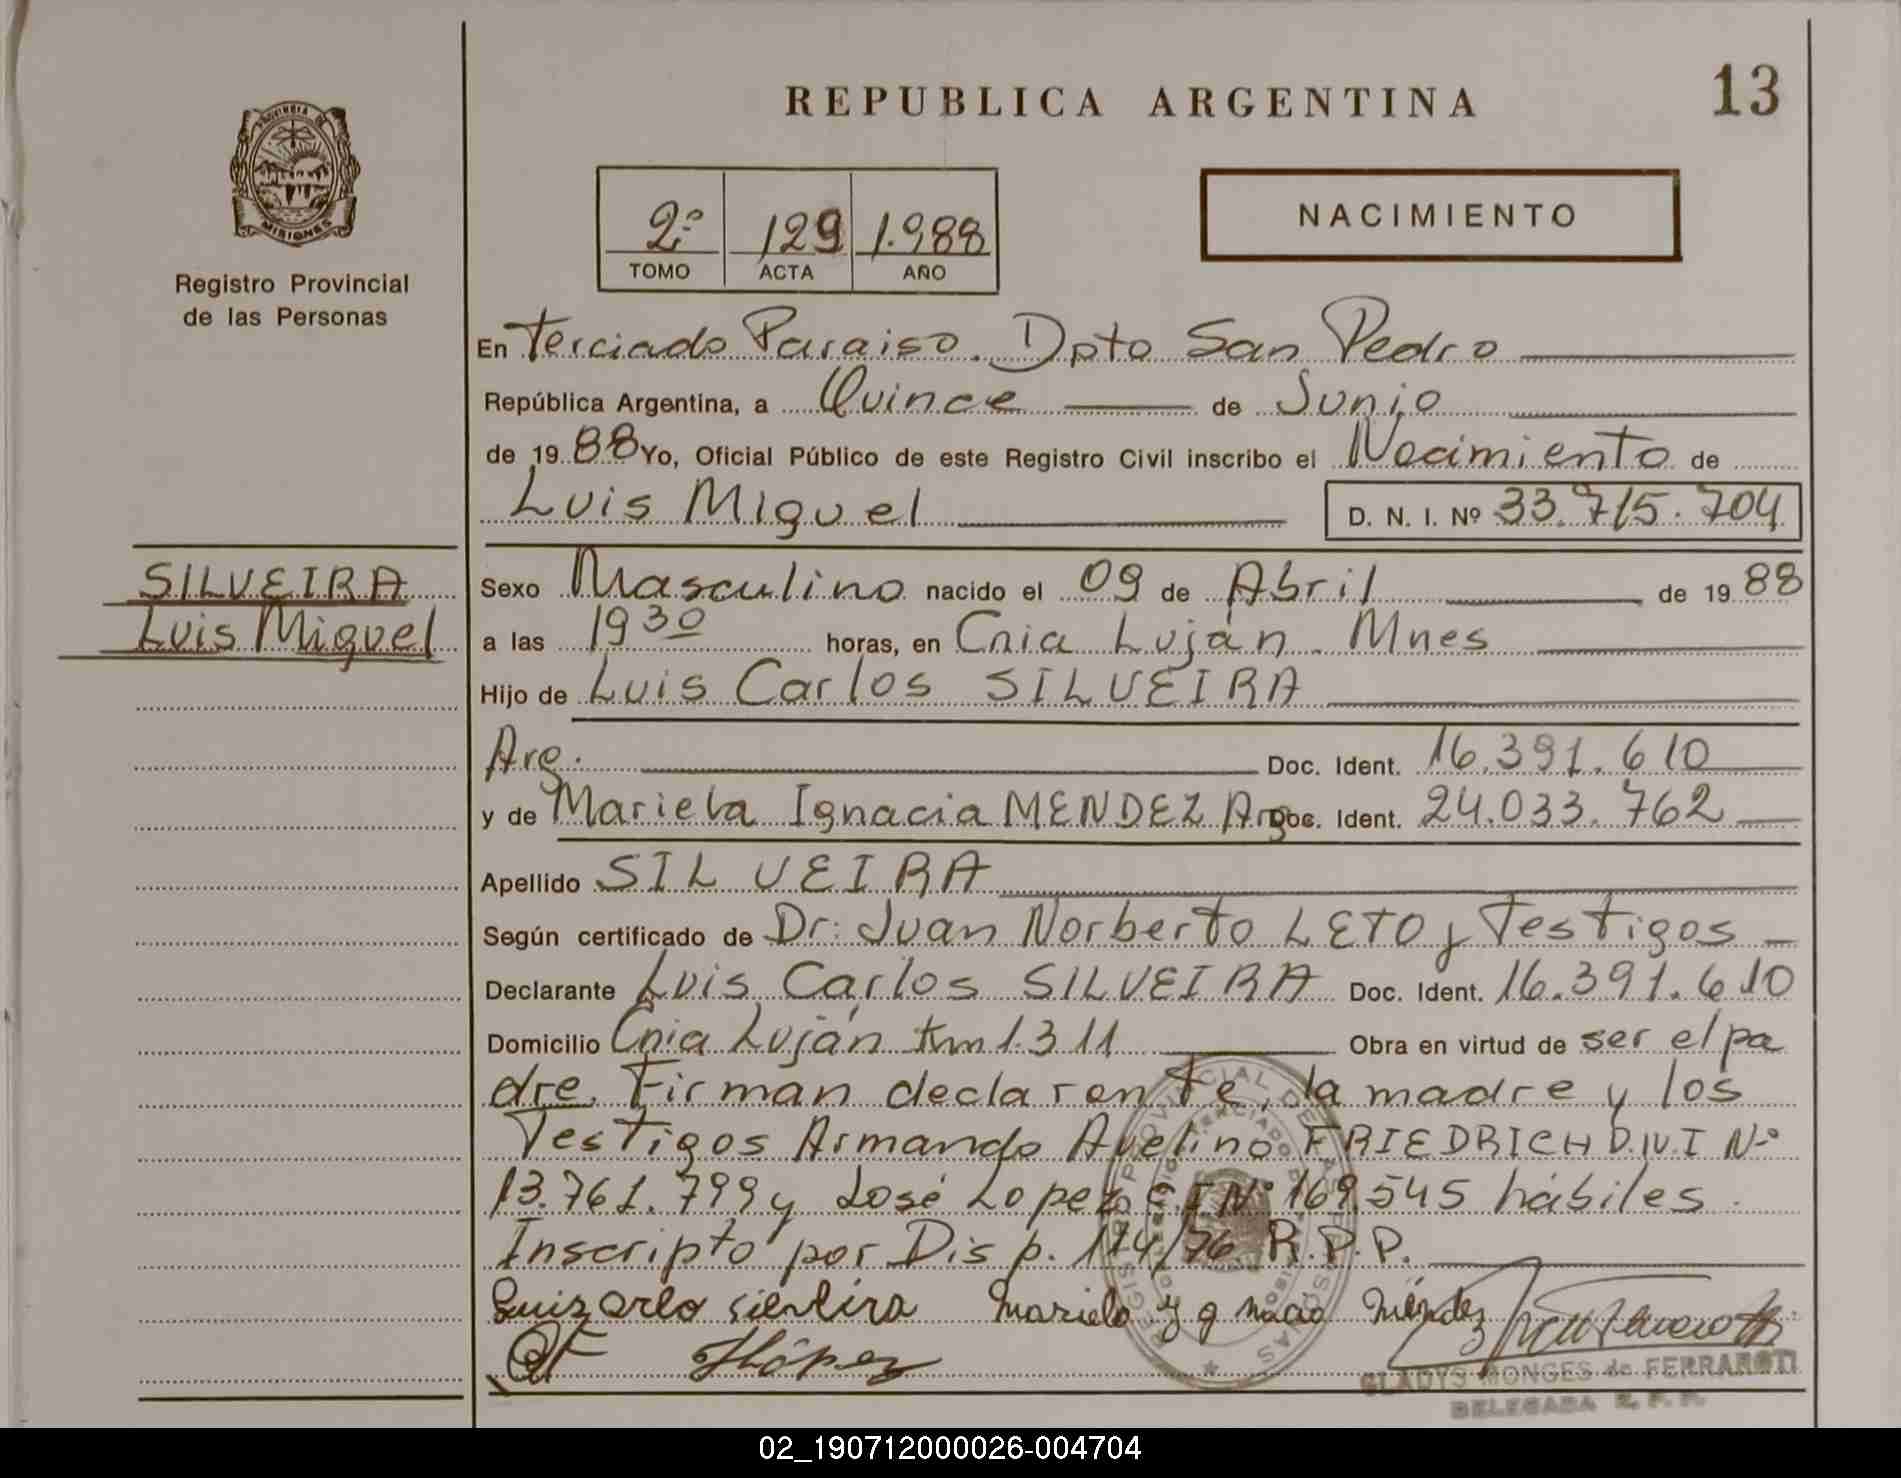 REPUBLICA ARGENTINA
13
PROVINCIA DE
MISIONES
Registro Provincial
de las Personas
2º 129 1.988
TOMO ACTA AÑO
NACIMIENTO
En Terciado Paraiso. Dpto San Pedro
República Argentina, a Quince de Junio
de 19 88 Yo, Oficial Público de este Registro Civil inscribo el Nacimiento de
Luis Miguel
D. N. I. Nº 33.715.704
SILVEIRA
Luis Miguel
Sexo Masculino nacido el 09 de Abril de 19 88
a las 19 30 horas, en Cnia Luján. Mnes
Hijo de Luis Carlos SILVEIRA
Arg. Doc. Ident. 16.391.610
y de Mariela Ignacia MENDEZ Arg Doc. Ident. 24.033.762
Apellido SILVEIRA
Según certificado de Dr: Juan Norberto LETO y Testigos
Declarante Luis Carlos SILVEIRA Doc. Ident. 16.391.610
Domicilio Cnia Luján Km 1.311 Obra en virtud de ser el pa
dre. Firman declarante, la madre y los
Testigos Armando Avelino FRIEDRICH D.N.I Nº
13.761.799 y José Lopez C.I Nº 169.545 hábiles.
Inscripto por Disp. 114/76 R.P.P.
REGISTRO PROVINCIAL DE LAS PERSONAS
Mariela Méndez
JLópez
GLADYS MONGES de FERRAROTI
DELEGADA R. P. P.
02_190712000026-004704